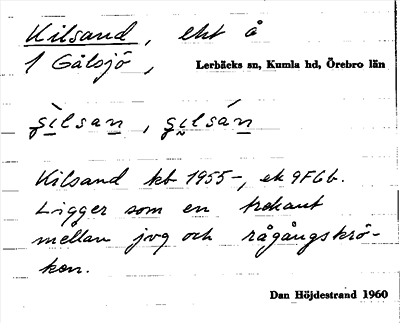 Kilsand, eht å
1 Gålsjö,
Lerbäcks sn, Kumla hd, Örebro län
gìlsan, gilsán
Kilsand kb 1955-, ek 9F6b.
Ligger som en trekant
mellan jvg och rågångskrö-
ken.
Dan Höjdestrand 1960